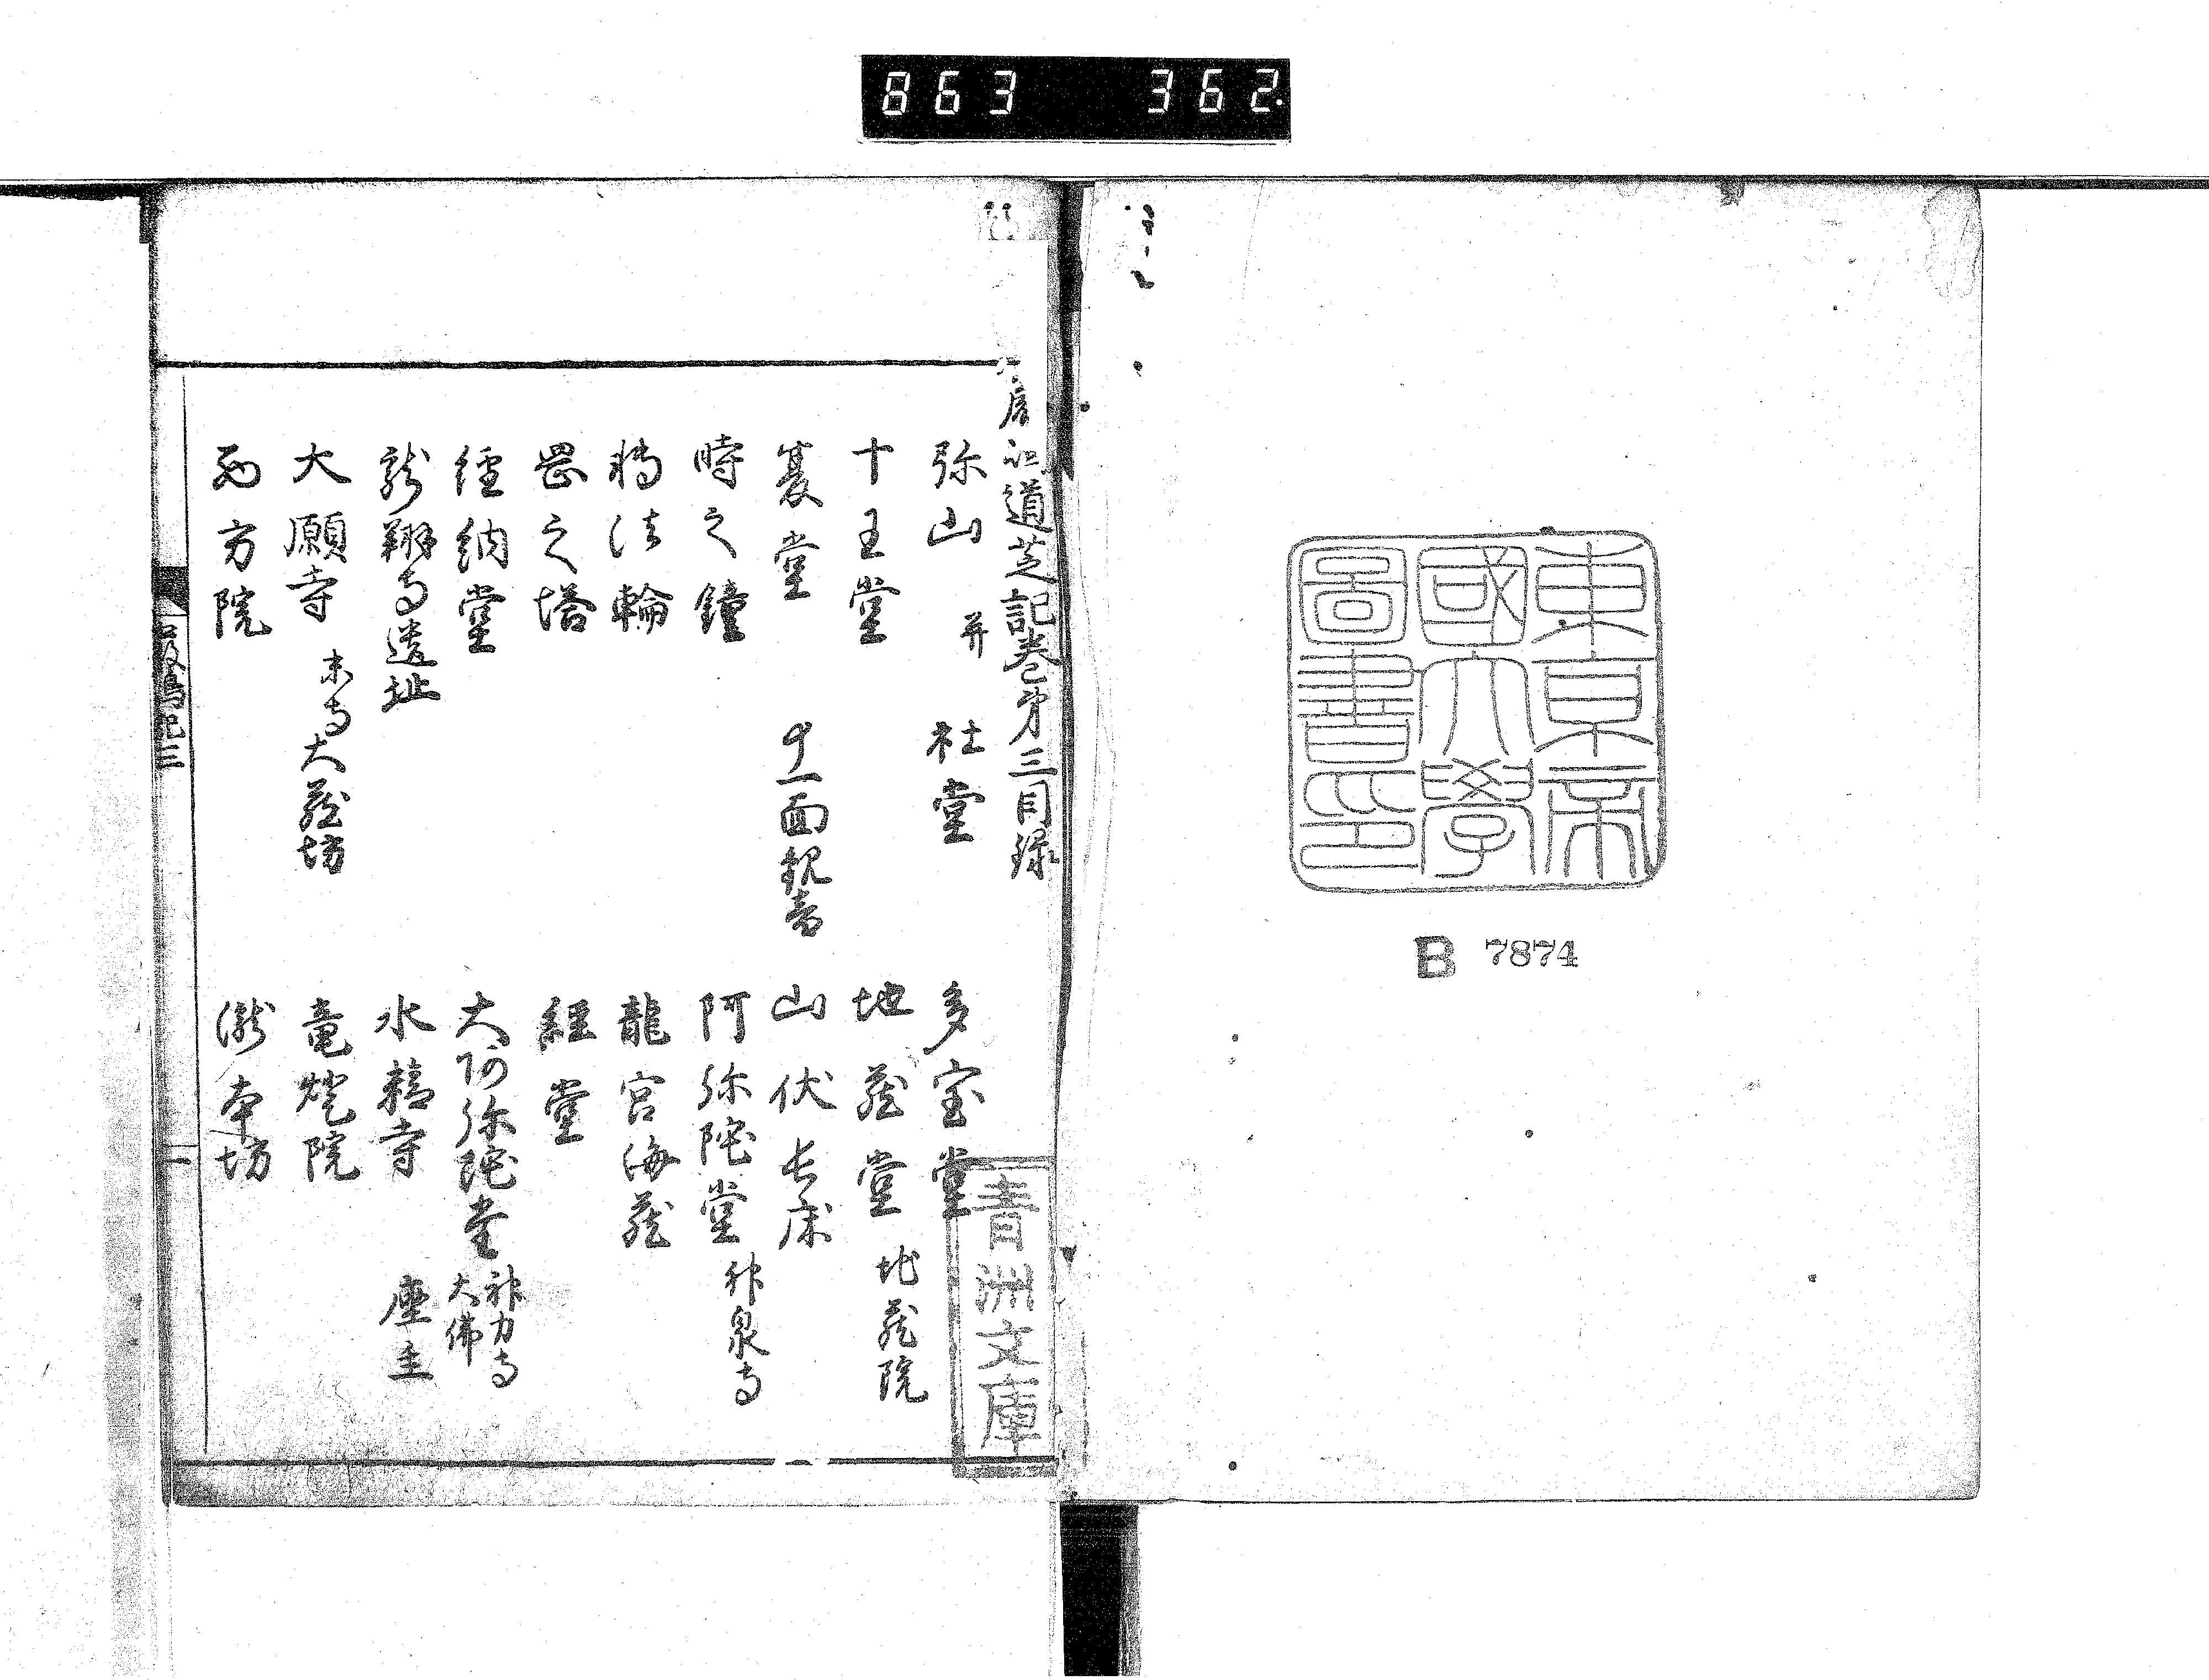 863 362
東京帝
國大學
圖書印
B 7874
道芝記巻第三目録
弥山 并 社堂 多宝堂
十王堂 地蔵堂 地蔵院
篡堂 十一面観音 山伏長床
時之鐘 阿弥陀堂 神泉寺
転法輪 龍宮海蔵
之塔 経堂
経納堂 大阿弥陀堂 神力寺 大佛
龍翔寺遺址 水精寺 座主
大願寺 末寺大蔵坊 竜燈院
西方院 瀧本坊
青洲文庫
嚴島記三
一